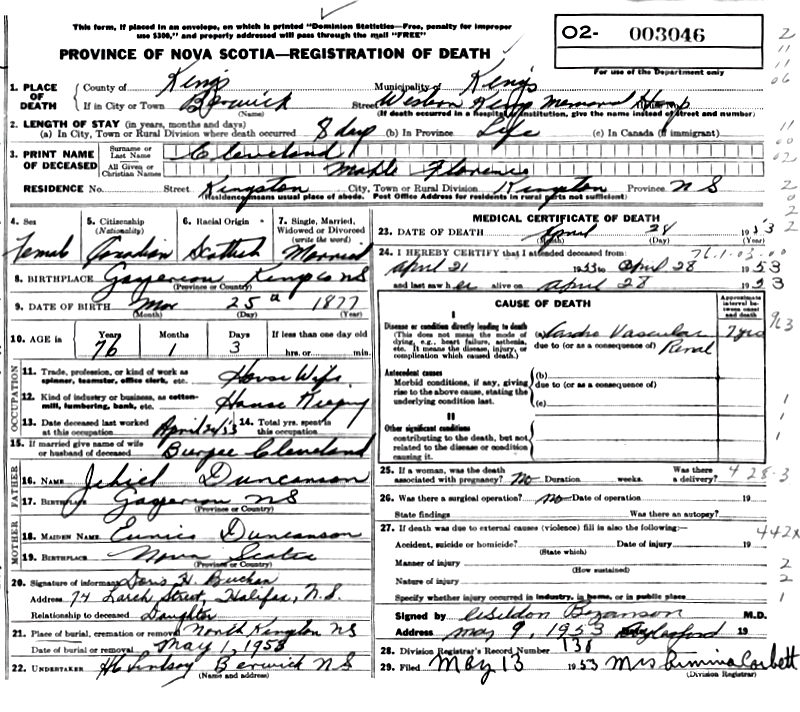 This form, if placed in an envelope, on which is printed "Dominion Statistics—Free, penalty for improper
use $300," and properly addressed will pass through the mail "FREE"
PROVINCE OF NOVA SCOTIA—REGISTRATION OF DEATH
O2- 003046
For use of the Department only
1. PLACE OF DEATH { County of Kings Municipality of Kings
If in City or Town Berwick Street Western Kings Memorial Hosp
(Name) (If death occurred in a hospital institution, give the name instead of street and number)
2. LENGTH OF STAY (in years, months and days)
(a) In City, Town or Rural Division where death occurred 8 days (b) In Province Life (c) In Canada (if immigrant)
3. PRINT NAME OF DECEASED { Surname or Last Name Cleveland
All Given or Christian Names Mable Florence
RESIDENCE No. Street Kingston City, Town or Rural Division Kingston Province NS
(Residence means usual place of abode. Post Office Address for residents in rural parts not sufficient)
4. Sex Female
5. Citizenship (Nationality) Canadian
6. Racial Origin Scottish
7. Single, Married, Widowed or Divorced (write the word) Married
8. BIRTHPLACE Kings Co NS
(Province or Country)
9. DATE OF BIRTH Mar 25 1877
(Month) (Day) (Year)
10. AGE in { Years 76 Months 1 Days 3 If less than one day old
hrs. or min.
OCCUPATION
11. Trade, profession, or kind of work as spinner, teamster, office clerk, etc. House Wife
12. Kind of industry or business, as cotton-mill, lumbering, bank, etc. House Keeping
13. Date deceased last worked at this occupation April 21/53 14. Total yrs. spent in this occupation
15. If married give name of wife or husband of deceased Burpee Cleveland
FATHER
16. NAME Jehiel Duncanson
17. BIRTHPLACE NS
(Province or Country)
MOTHER
18. MAIDEN NAME Eunice Duncanson
19. BIRTHPLACE Nova Scotia
(Province or Country)
20. Signature of informant Doris H. Buchan
Address 74 Larch Street, Halifax, N.S.
Relationship to deceased Daughter
21. Place of burial, cremation or removal North Kingston NS
Date of burial or removal May 1, 1953
22. UNDERTAKER Lindsay Berwick NS
(Name and address)
MEDICAL CERTIFICATE OF DEATH
23. DATE OF DEATH April 28 1953
(Month) (Day) (Year)
24. I HEREBY CERTIFY that I attended deceased from: 76.1.03.00
April 21 1953 to April 28 1953
and last saw her alive on April 28 1953
CAUSE OF DEATH
Approximate interval between onset and death
I
Disease or condition directly leading to death
(This does not mean the mode of dying, e.g., heart failure, asthenia, etc. It means the disease, injury, or complication which caused death.)
(a) Cardio Vascular Renal
due to (or as a consequence of)
Antecedent causes
Morbid conditions, if any, giving rise to the above cause, stating the underlying condition last.
(b)
due to (or as a consequence of)
(c)
II
Other significant conditions
contributing to the death, but not related to the disease or condition causing it.
25. If a woman, was the death associated with pregnancy? No Duration weeks. Was there a delivery? 428-3
26. Was there a surgical operation? no Date of operation 19
State findings Was there an autopsy?
27. If death was due to external causes (violence) fill in also the following:— 442x
Accident, suicide or homicide? Date of injury 19
(State which)
Manner of injury
(How sustained)
Nature of injury
Specify whether injury occurred in industry, in home, or in public place
Signed by Bezanson M.D.
Address May 9, 1953 Aylesford 19
28. Division Registrar's Record Number 138
29. Filed May 13 1953 Mrs Corbett
(Division Registrar)